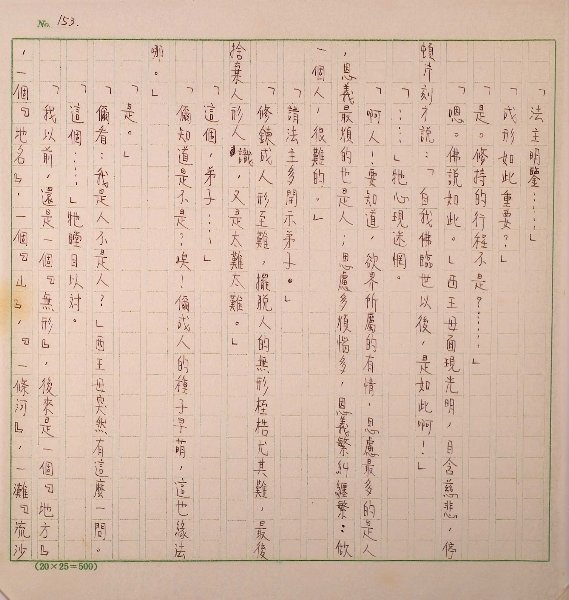 No. 153.
「法主明鑒……」
「成形如此重要？」
「是。修持的行程不是？……」
「嗯。佛說如此。」西王母面現光明，目含慈悲，停
頓片刻才說：「自我佛臨世以後，是如此啊！」
「……」牠心現迷惘。
「啊人！要知道，欲界所屬的有情，思慮最多的是人
，恩義最煩的也是人；思慮多煩惱多，恩義繁糾纏繁：做
一個人，很難的。」
「請法主多開示弟子。」
「修鍊成人形至難，擺脫人的無形桎梏尤其難，最後
捨棄人形人識，又是太難太難。」
「這個，弟子…」
「儞知道是不是？唉！儞成人的種子早萌，這也緣法
哪。」
「是。」
「儞看：我是人不是人？」西王母突然有這麼一問。
「這個……」牠瞠目以對。
「我以前，還是一個『無形』，後來是一個『地方』
，一個『地名』，一個『山』，『一條河』，一灘『流沙
(20×25=500)